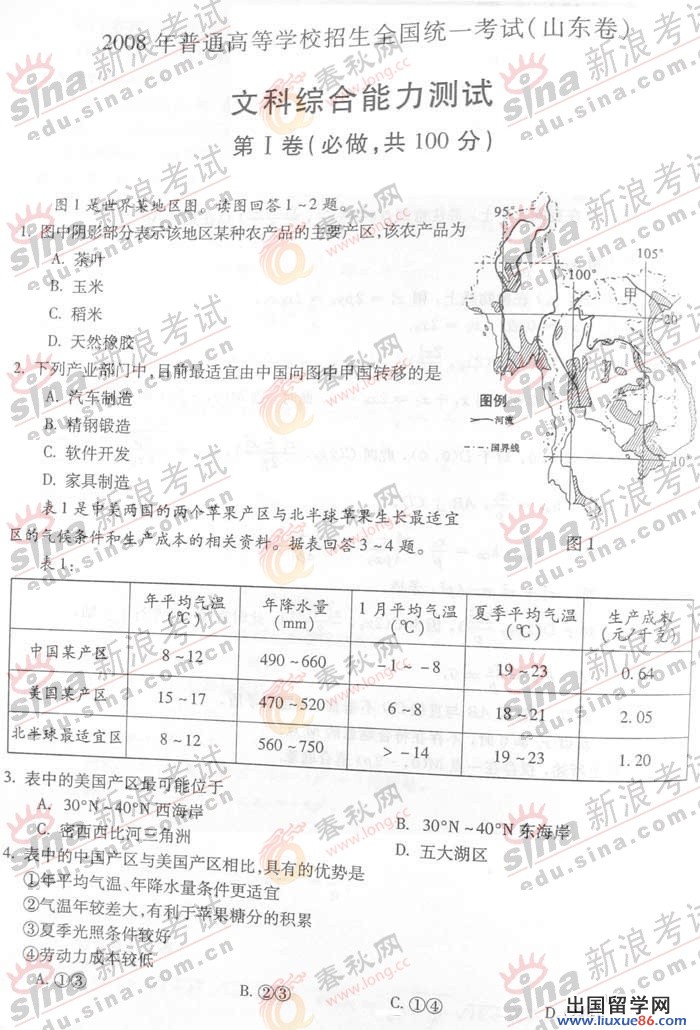 2008年普通高等学校招生全国统一考试(山东卷)
文科综合能力测试
第Ⅰ卷(必做,共100分)
图1是世界某地区图。读图回答1~2题。
1. 图中阴影部分表示该地区某种农产品的主要产区,该农产品为
A. 茶叶
B. 玉米
C. 稻米
D. 天然橡胶
2. 下列产业部门中,目前最适宜由中国向图中甲国转移的是
A. 汽车制造
B. 精钢锻造
C. 软件开发
D. 家具制造
95°
105°
100°
甲
20°
图例
河流
国界线
10°
图1
表1是中美两国的两个苹果产区与北半球苹果生长最适宜
区的气候条件和生产成本的相关资料。据表回答3~4题。
表1:
年平均气温(℃) 年降水量(mm) 1月平均气温(℃) 夏季平均气温(℃) 生产成本(元/千克)
中国某产区 8~12 490~660 -1~-8 19~23 0.64
美国某产区 15~17 470~520 6~8 18~21 2.05
北半球最适宜区 8~12 560~750 >-14 19~23 1.20
3. 表中的美国产区最可能位于
A. 30°N~40°N西海岸
B. 30°N~40°N东海岸
C. 密西西比河三角洲
D. 五大湖区
4. 表中的中国产区与美国产区相比,具有的优势是
①年平均气温、年降水量条件更适宜
②气温年较差大,有利于苹果糖分的积累
③夏季光照条件较好
④劳动力成本较低
A. ①③
B. ②③
C. ①④
D.
出国留学网
www.liuxue86.com
sina 新浪考试
edu.sina.com.cn
春秋网
www.cqlong.cc